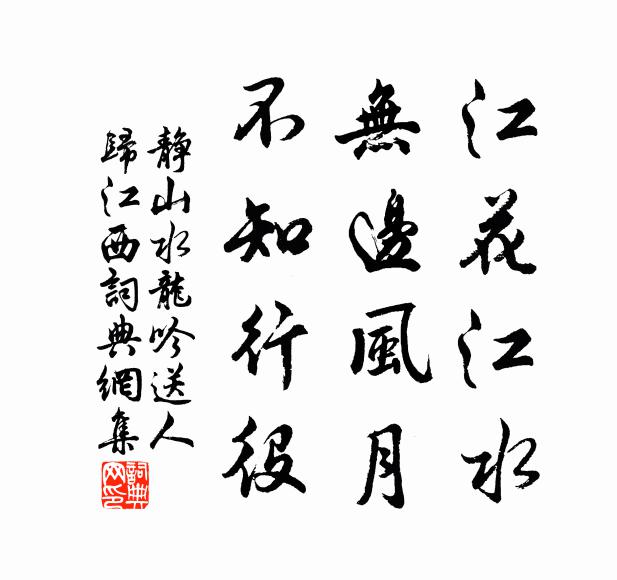 江花江水
無邊風月
不知行役
静山水龍吟送人
歸江西詞典網集
詞典
网印